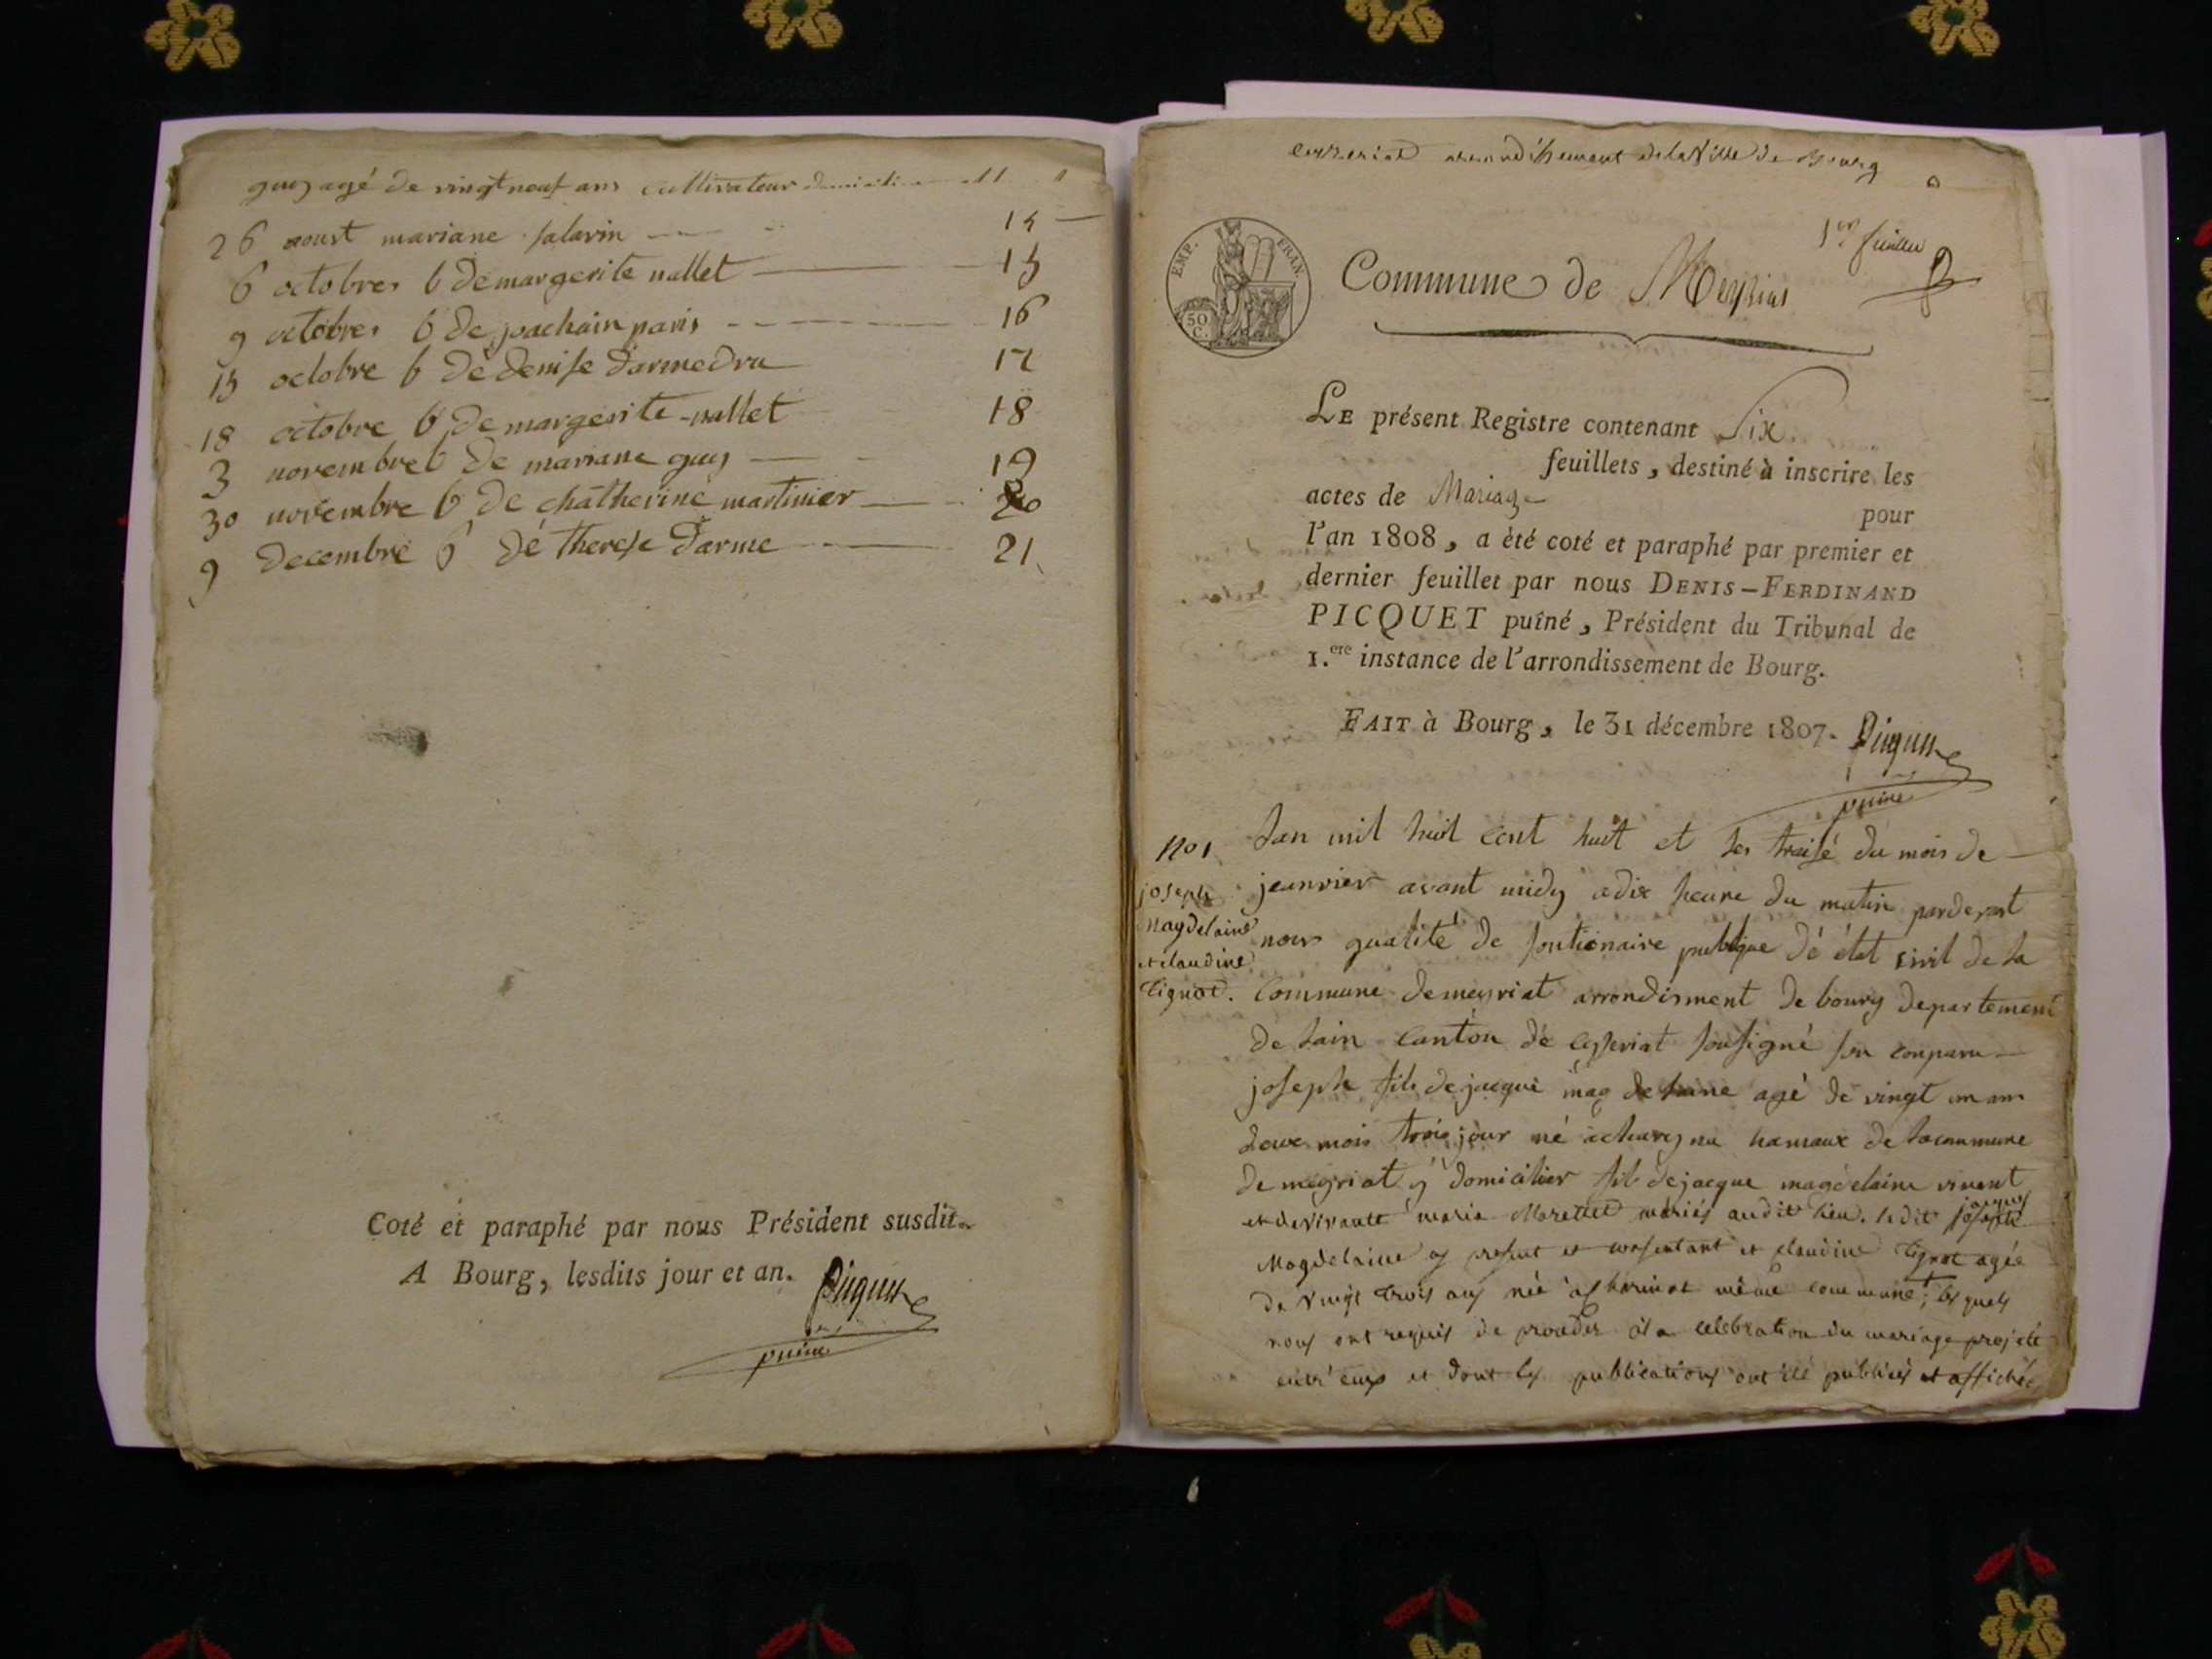 guy agé de vingt neuf ans cultivateur
26 aoust mariane salavin 14
6 octobres b de margerite nallet 15
9 octobres b de joachain paris 16
15 octobre b de denise darmedru 17
18 octobre b de margerite nallet 18
3 novembre b de mariane guy 19
30 novembre b de chatherine martinier 20
9 decembre b dé therese darme 21
Coté et paraphé par nous Président susdit.
A Bourg, lesdits jour et an. Picquet
puiné
arrondissement de la Ville de Bourg
1er feuillet
EMP. FRAN.
50 C.
Commune de Meyriat
LE présent Registre contenant Six
feuillets, destiné à inscrire les
actes de Mariage pour
l'an 1808, a été coté et paraphé par premier et
dernier feuillet par nous DENIS-FERDINAND
PICQUET puîné, Président du Tribunal de
1.ere instance de l'arrondissement de Bourg.
FAIT à Bourg, le 31 décembre 1807. Picquet
puiné
No 1
joseph
Magdelaine
et claudine
Tignat.
Lan mil huit cent huit et les traisé du mois de
jeanvier avant midy a dix heure du matin pardevant
nous qualité de fontionaire publique dé état sivil de la
commune de meyriat arrondisment de bourg departement
de lain canton dé ceyseriat sousigné son conparu
joseph fils de jacque magdelaine agé de vingt un ans
deux mois trois jour né hamaux de la commune
de meyriat y domicilier fils de jacque magdelaine vivant
et de vivante marie Morettet mariés audit lieu. le dit jacques
Magdelaine cy present et consentant et claudine Tignat agée
de vingt trois ans née même commune; lesquels
nous ont requis de proceder à la celebration du mariage projeté
entr'eux et dont les publications ont été publiées et affichées